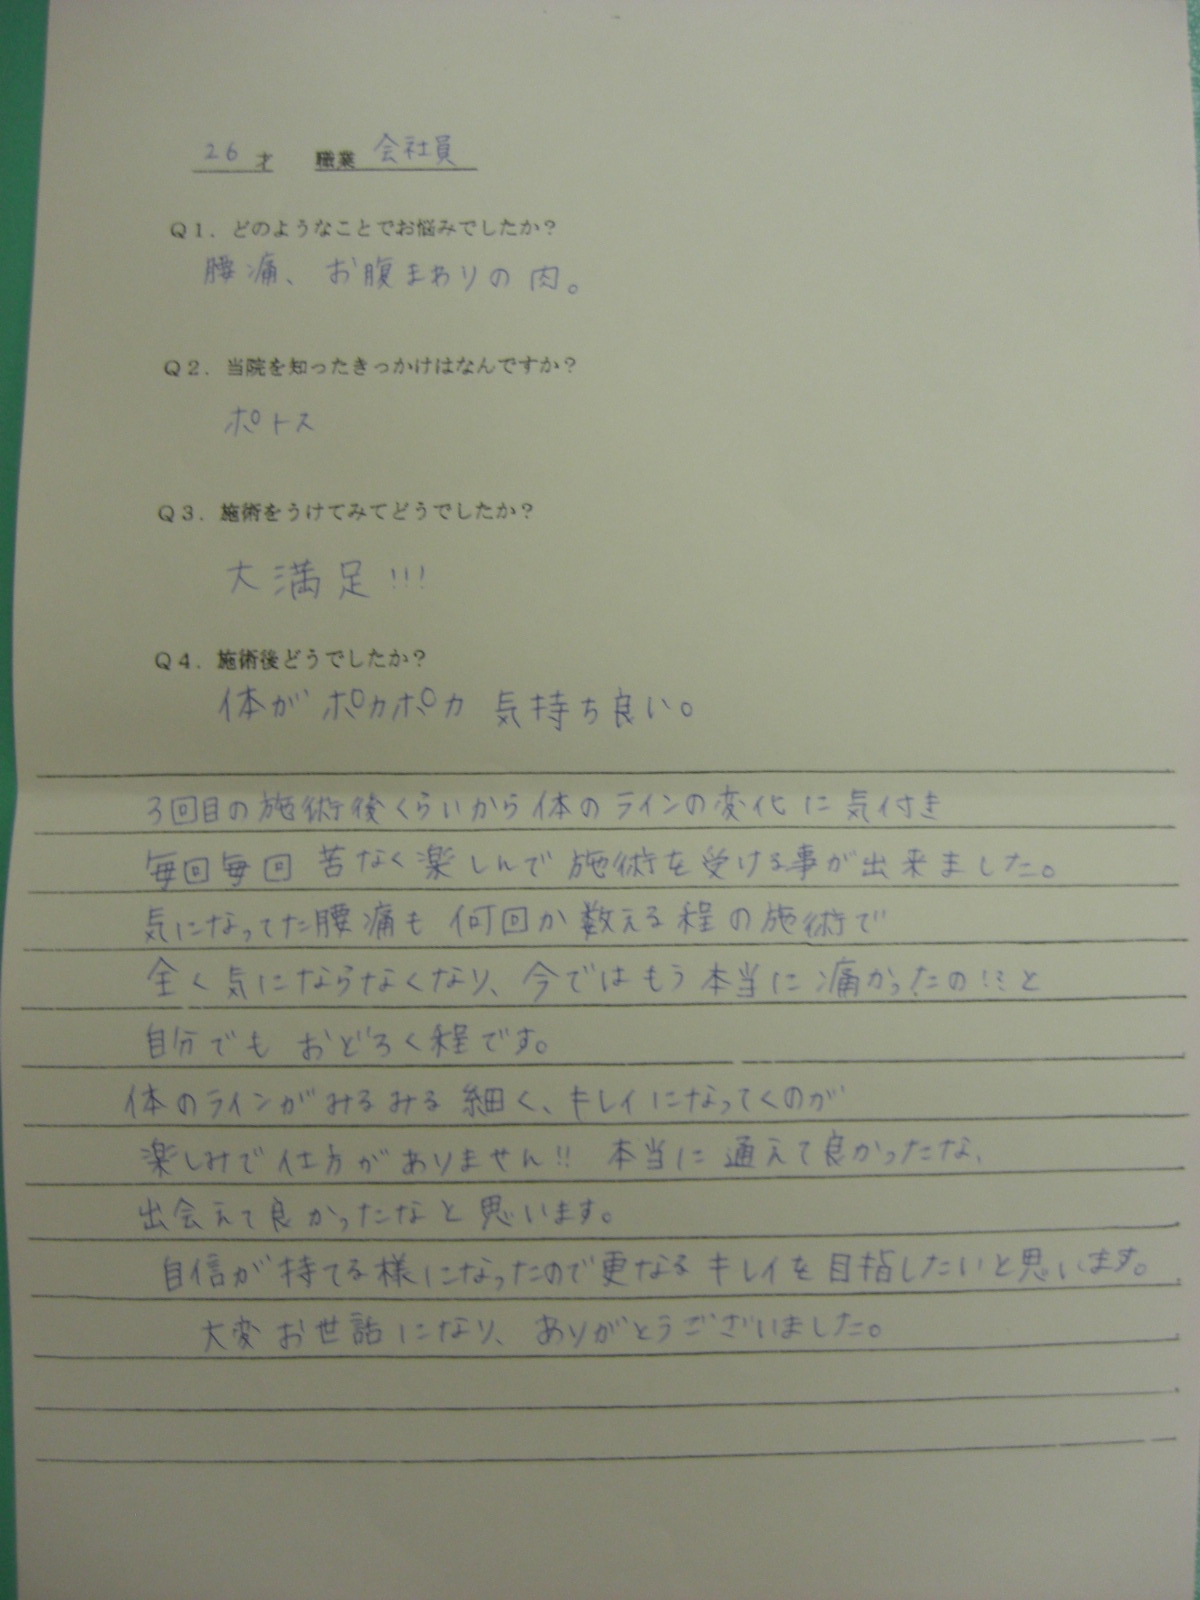 26才 職業 会社員
Q1. どのようなことでお悩みでしたか?
腰痛、お腹まわりの肉。
Q2. 当院を知ったきっかけはなんですか?
ポトス
Q3. 施術をうけてみてどうでしたか?
大満足!!!
Q4. 施術後どうでしたか?
体がポカポカ 気持ち良い。
3回目の施術後くらいから体のラインの変化に気付き
毎回毎回 苦なく楽しんで施術を受ける事が出来ました。
気になってた腰痛も 何回か数える程の施術で
全く気にならなくなり、今ではもう本当に痛かったの!?と
自分でも おどろく程です。
体のラインがみるみる細く、キレイになってくのが
楽しみで仕方がありません!! 本当に通えて良かったな、
出会えて良かったなと思います。
自信が持てる様になったので更なるキレイを目指したいと思います。
大変お世話になり、ありがとうございました。